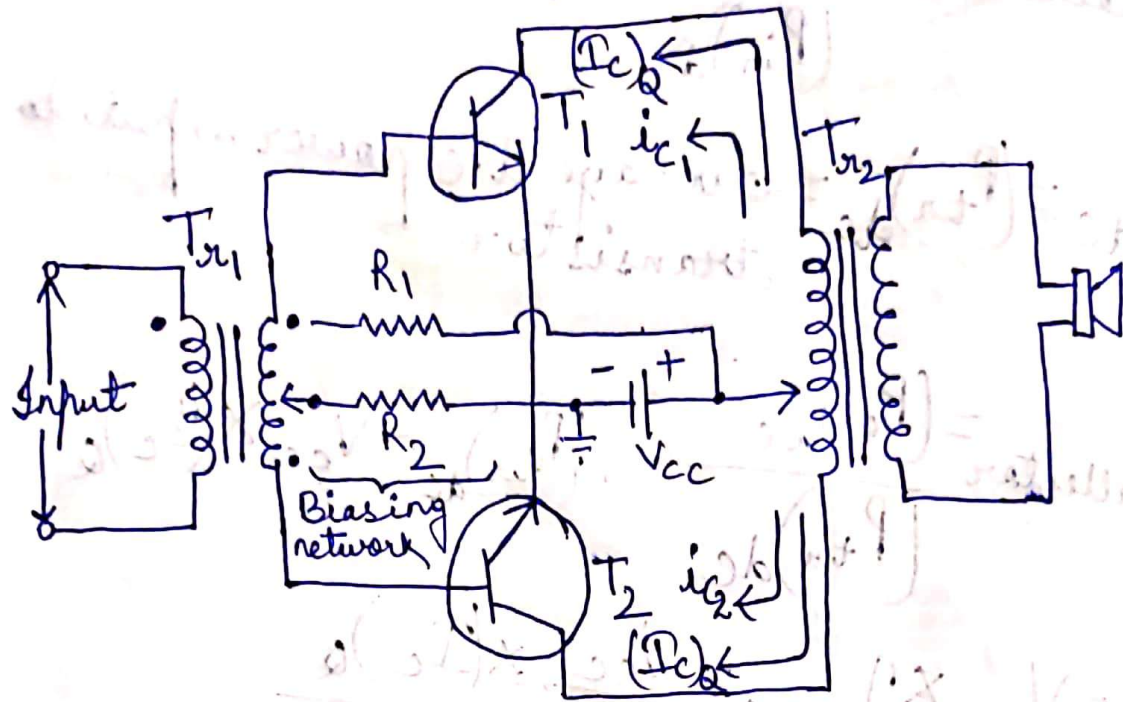 (I_c)_Q
T_1
i_c_1
T_r_2
T_r_1
R_1
- +
Input
R_2
V_CC
Biasing
network
T_2
i_c_2
(I_c)_Q